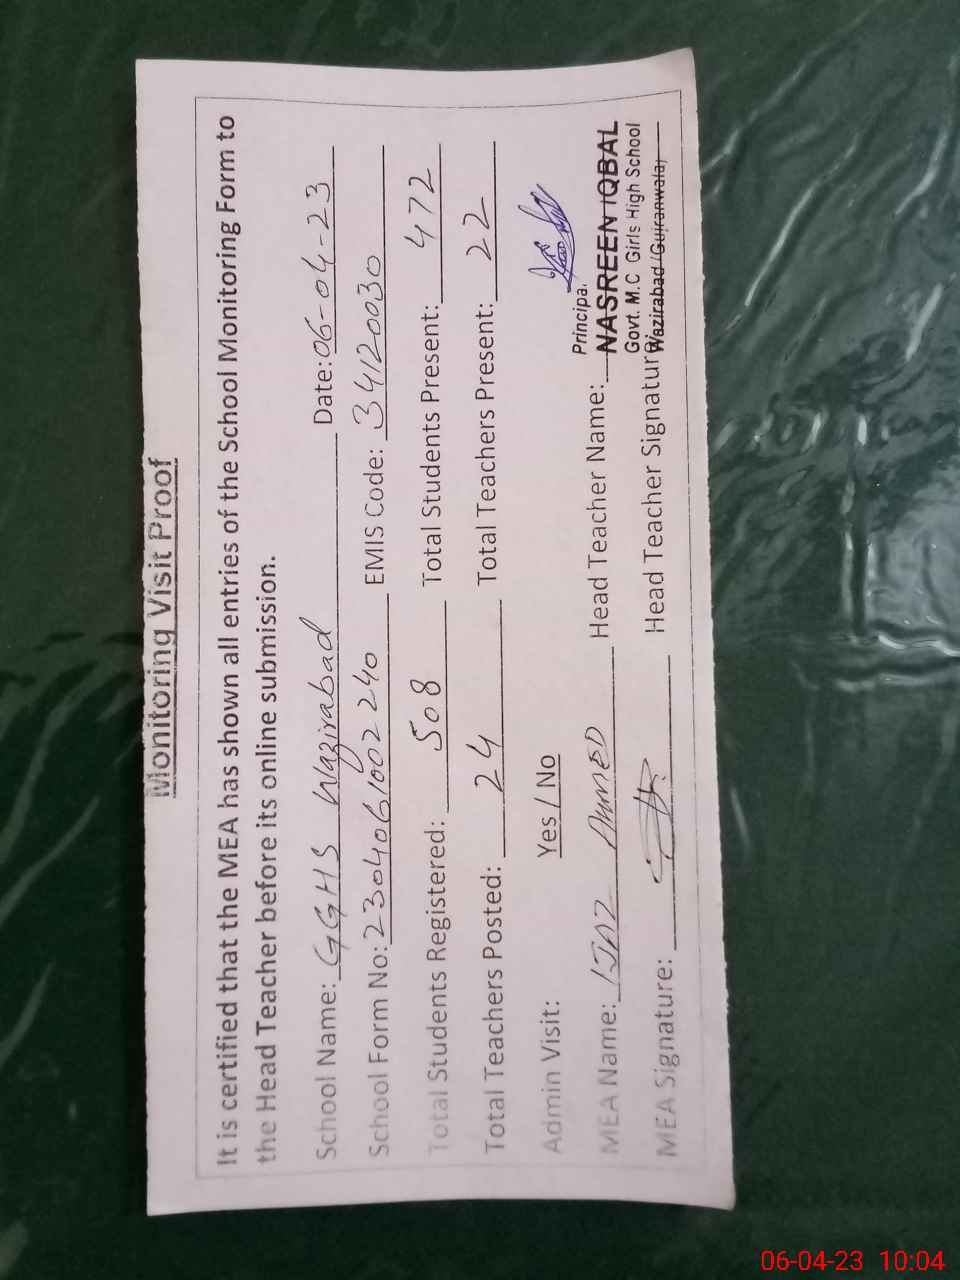 Monitoring Visit Proof
It is certified that the MEA has shown all entries of the School Monitoring Form to
the Head Teacher before its online submission.
School Name: GGHS Wazirabad Date: 06-04-23
School Form No: 2304061002240 EMIS Code: 34120030
Total Students Registered: 508 Total Students Present: 472
Total Teachers Posted: 24 Total Teachers Present: 22
Admin Visit: Yes / No
Principal
MEA Name: IJAZ AHMED Head Teacher Name: NASREEN IQBAL
Govt. M.C Girls High School
MEA Signature: Head Teacher Signature: Wazirabad (Gujranwala)
06-04-23 10:04